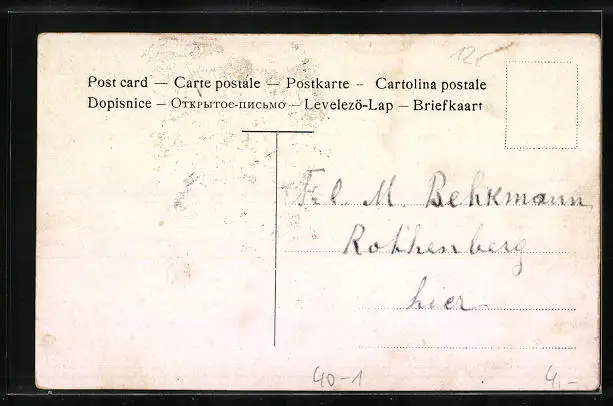 12.-
Post card — Carte postale — Postkarte – Cartolina postale
Dopisnice — Открытое-письмо — Levelező-Lap — Briefkaart
Frl. M. Behkmann
Rothenberg
hier
40-1
4,-